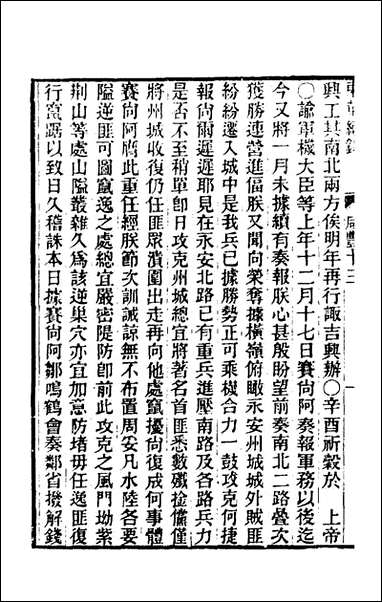 興工其南北兩方俟明年再行諏吉興辦〇辛酉祈穀於　上帝
〇諭軍機大臣等上年十二月十七日賽尚阿奏報軍務以後迄
今又將一月未據續有奏報朕心甚殷盼望前奏南北二路疊次
獲勝連營進偪朕又聞向榮奪據橫嶺俯瞰永安州城城外賊匪
紛紛遷入城中是我兵已據勝勢正可乘機合力一鼓攻克何捷
報尚爾遲遲耶見在永安北路已有重兵進壓南路及各路兵力
是否不至稍單卽日攻克州城總宜將著名首匪悉數殲擒儻僅
將州城收復仍任匪眾潰圍出走再向他處竄擾尚復成何事體
賽尚阿膺此重任經朕節次訓誡諒無不布置周妥凡水陸各要
隘逆匪可圖竄逸之處總宜嚴密隄防卽前此攻克之風門坳紫
荆山等處山隘叢雜久為該逆巢穴亦宜加意防堵毋任逸匪復
行竄踞以致日久稽誅本日據賽尚阿鄒鳴鶴會奏鄰省撥解錢